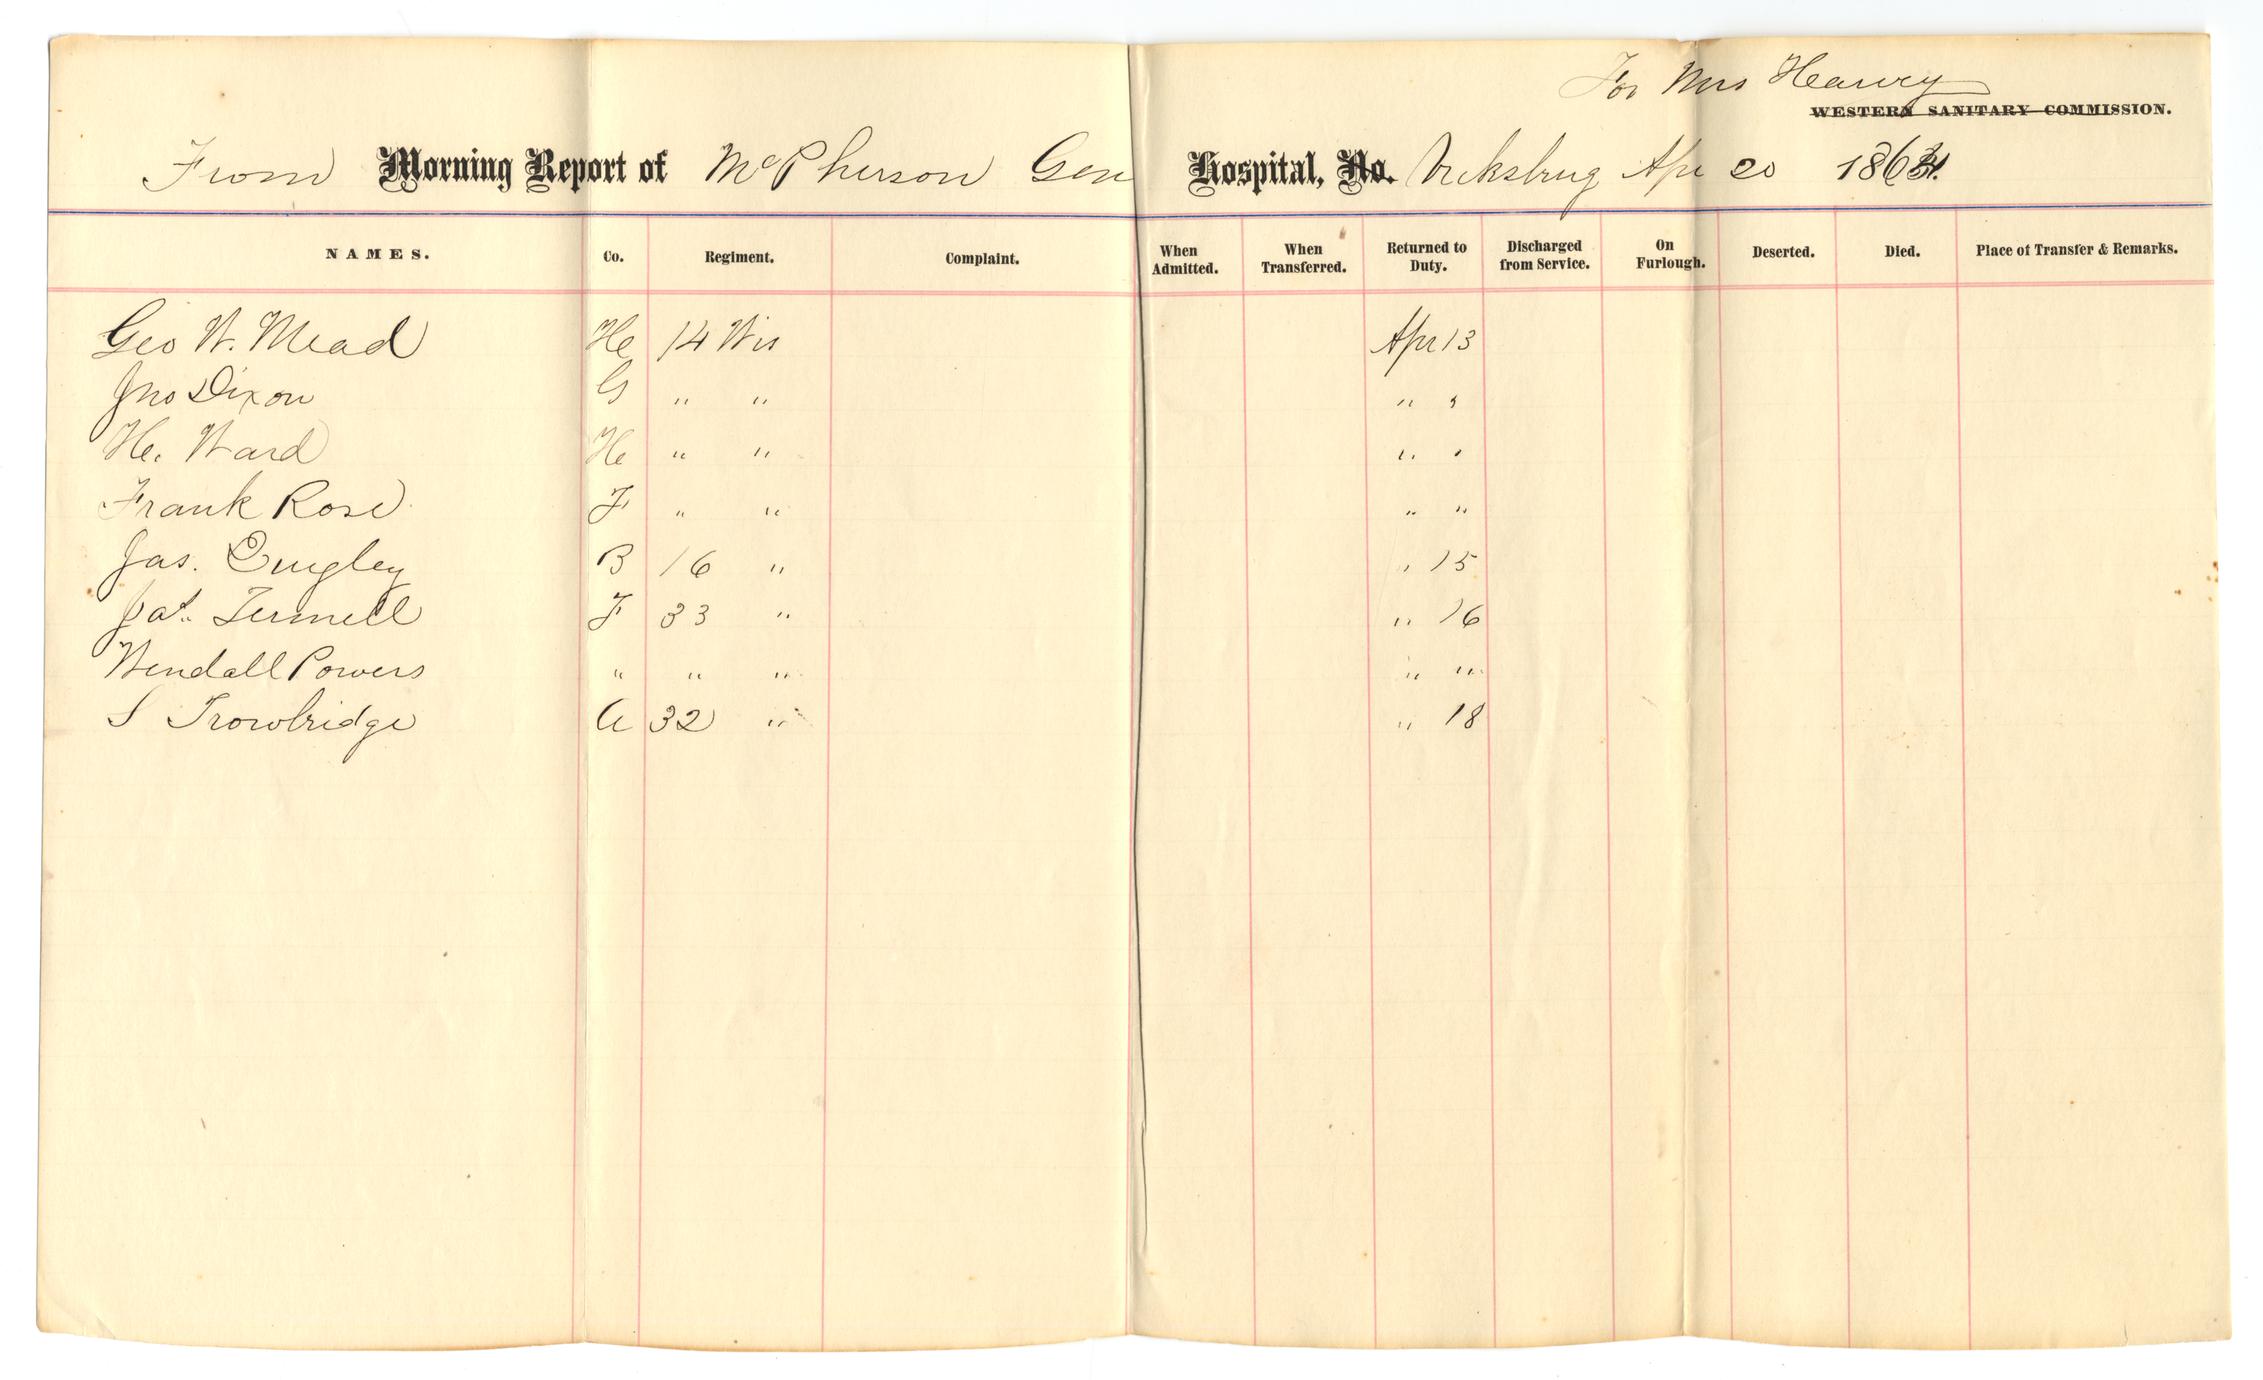 For Mrs Hearvy
WESTERN SANITARY COMMISSION.
From Morning Report of McPherson Gen Hospital, No. Vicksburg Apr 20 1864.
NAMES. Co. Regiment. Complaint. When Admitted. When Transferred. Returned to Duty. Discharged from Service. On Furlough. Deserted. Died. Place of Transfer & Remarks.
Geo W. Mead H 14 Wis Apr 13
Jno Dixon G " " " "
H. Ward H " " " "
Frank Rose F " " " "
Jas. Quigley B 16 " " 15
Pat. F 33 " " 16
Wendall Powers " " " " "
S Trowbridge A 32 " " 18